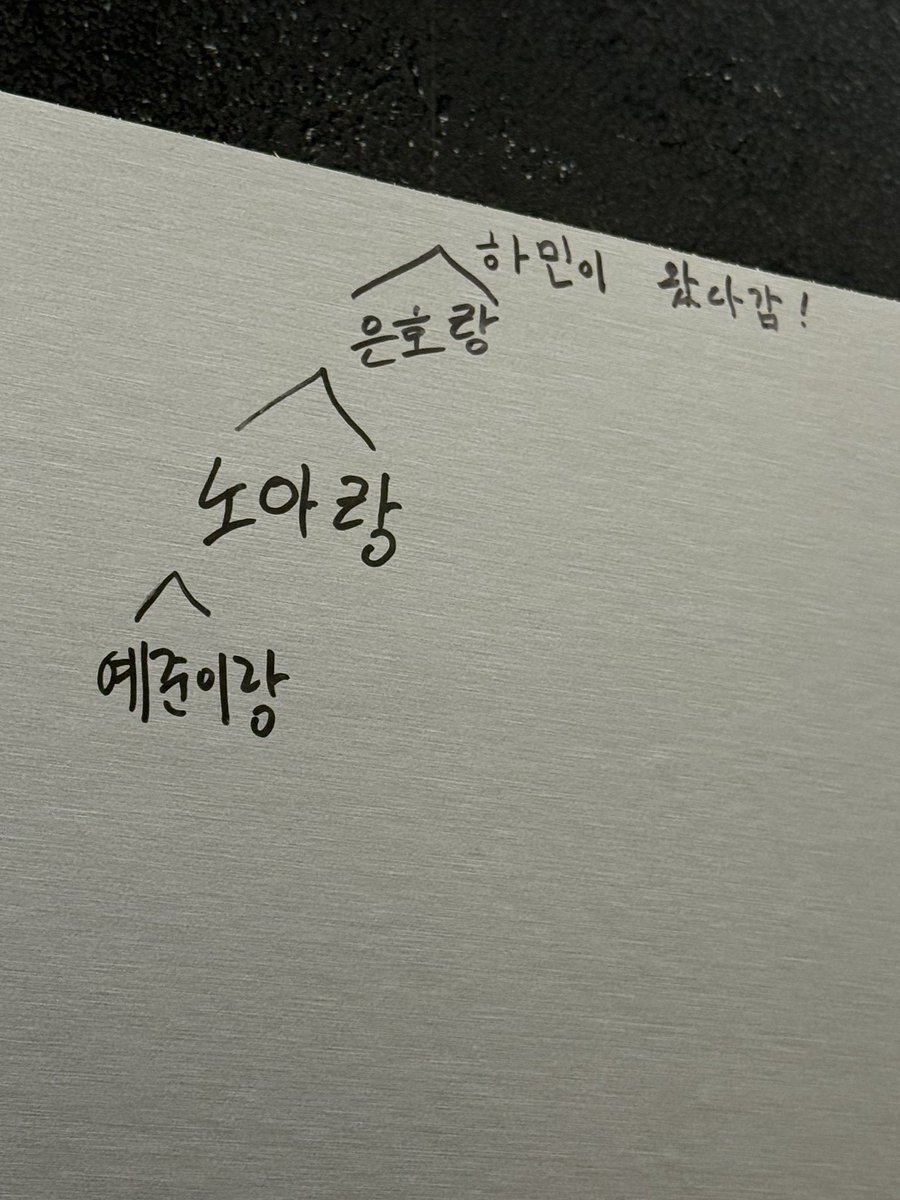 하민이 왔다감!
은호랑
노아랑
예준이랑